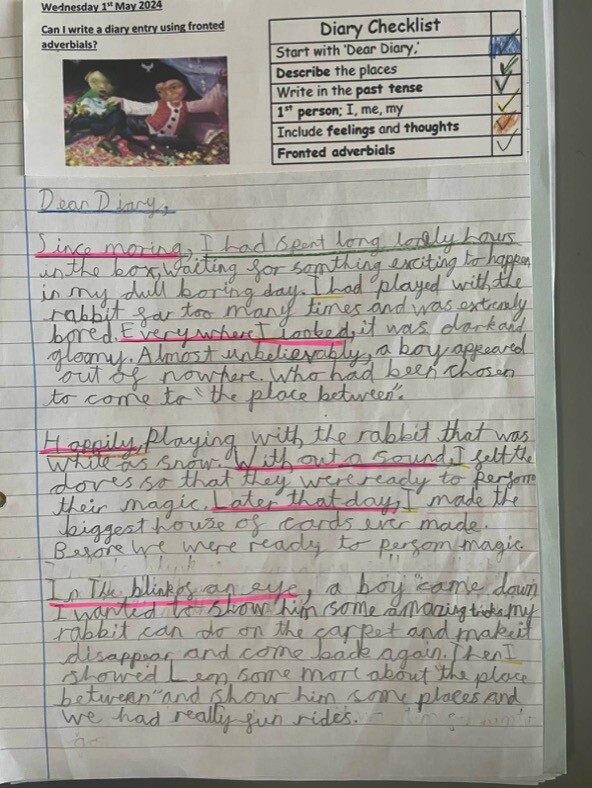 Wednesday 1st May 2024
Can I write a diary entry using fronted
adverbials?
Diary Checklist
Start with 'Dear Diary,'
Describe the places
Write in the past tense
1st person; I, me, my
Include feelings and thoughts
Fronted adverbials
Dear Diary,
Since moring, I had spent long lovly hours
in the box, waiting for somthing exciting to happen
in my dull boring day. I had played with the
rabbit far too many times and was extremly
bored. Everywhere I looked, it was dark and
gloamy. Almost unbelievably, a boy appeared
out of nowhere. Who had been chosen
to come to "the place between".
Happily, Playing with the rabbit that was
white as snow. With out a sound, I felt the
doves so that they were ready to perfom
their magic. Later that day, I made the
biggest house of cards ever made.
Before we were ready to perfom magic.
In The blink of an eye, a boy came down
I wanted to show him some amazing tricks my
rabbit can do on the carpet and make it
disappear and come back again. Then I
showed Leon some more about the place
between" and show him some places and
we had really fun rides.